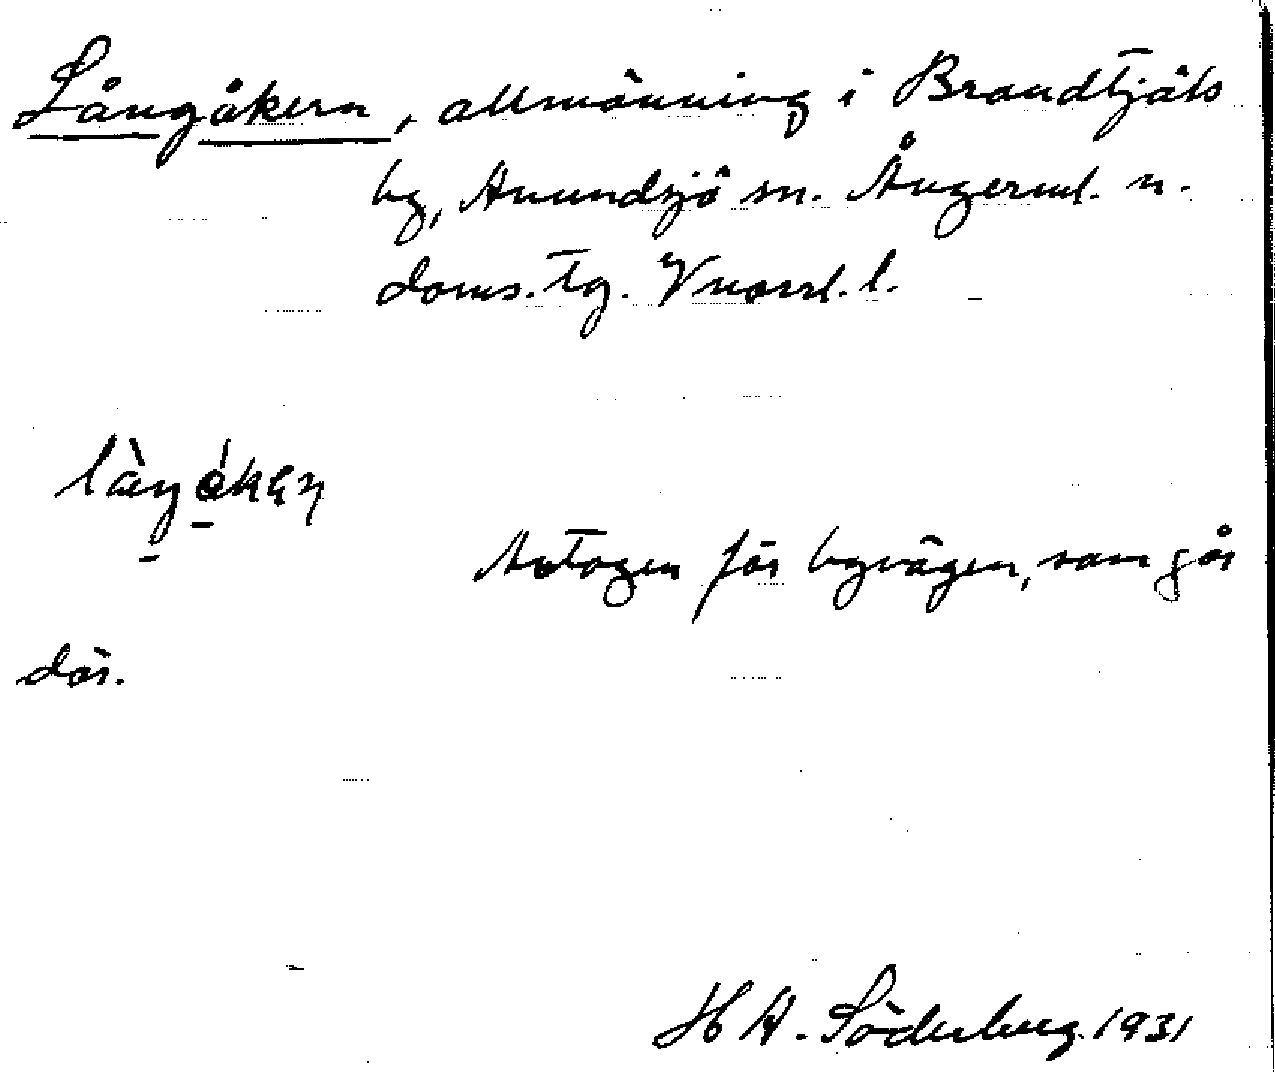 Långåkern, allmänning i Brandtjäls
by, Anundsjö sn. Ångerml. n.
doms. tg. Vnorrl. l.
Avtagen för byvägen, som går
där.
H A. Söderberg. 1931